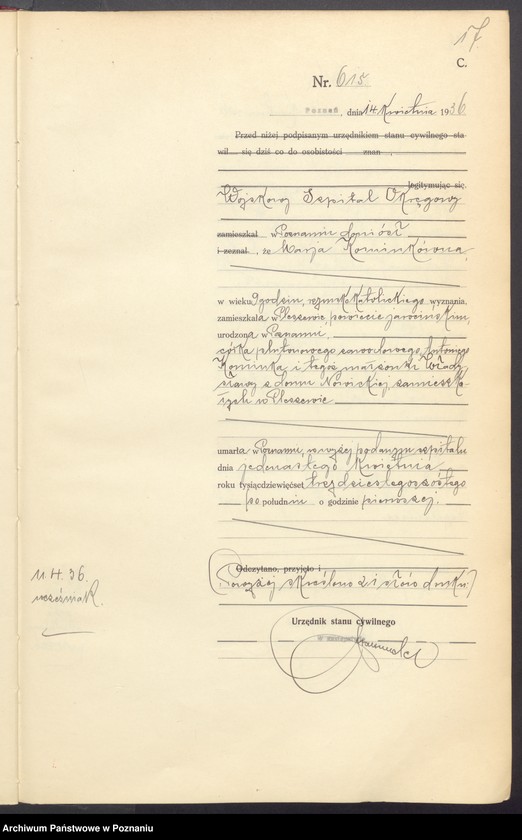 17.
C.
Nr. 615.
Poznań, dnia 14 Kwietnia 1936
Przed niżej podpisanym urzędnikiem stanu cywilnego sta-
wił się dziś co do osobistości znan ,
legitymując się
Wojskowy Szpital Okręgowy
zamieszkał w Poznaniu doniósł
i zeznał, że Marja Kominkówna,
w wieku 9 godzin, rzymskokatolickiego wyznania,
zamieszkała w Pleszewie, powiecie jarocińskim,
urodzona w Poznaniu,
córka plutonowego zawodowego Antoniego
Kominka i tegoż małżonki Włady-
sławy z domu Nowickiej, zamieszka-
łych w Pleszewie
umarła w Poznaniu, w wyżej podanym szpitalu
dnia jedenastego Kwietnia
roku tysiącdziewięćset trzydziestegoszóstego
po południu o godzinie pierwszej.
Odczytano, przyjęto i
(Powyżej skreślono 21 słów druku.)
11.4.36.
wcześniak.
Urzędnik stanu cywilnego
w zastępstwie
Archiwum Państwowe w Poznaniu